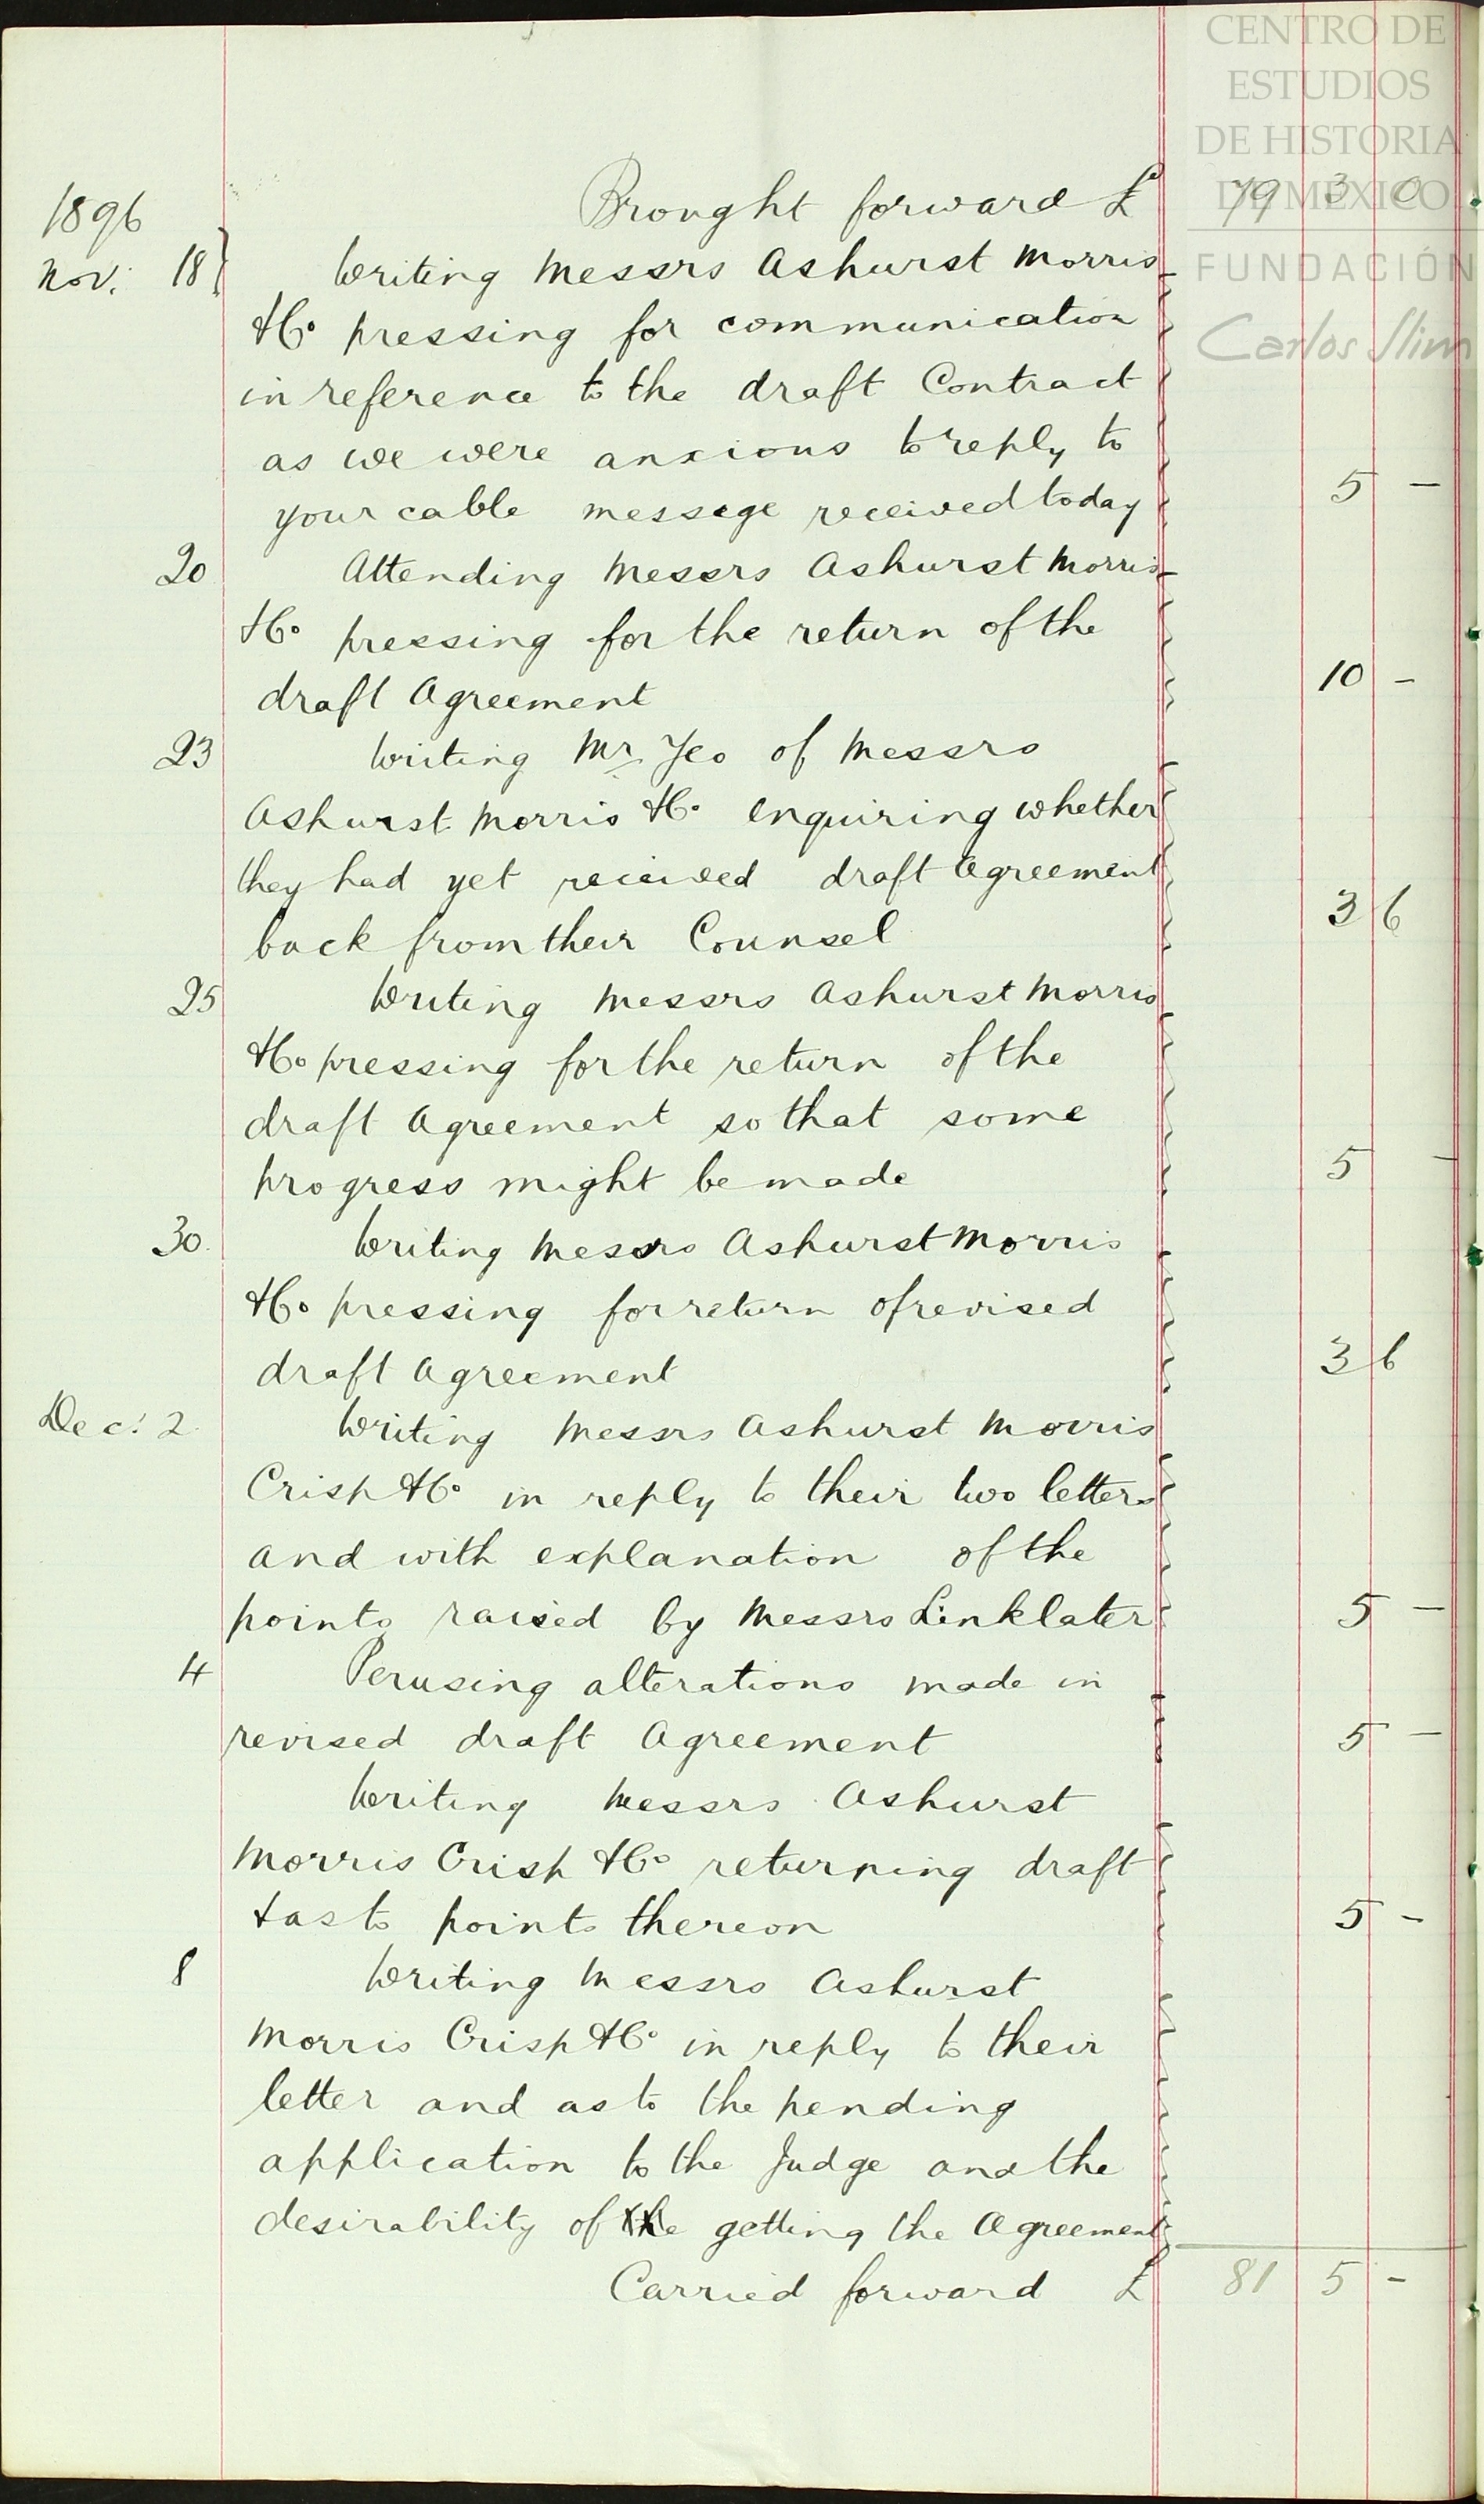 CENTRO DE
ESTUDIOS
DE HISTORIA
DE MÉXICO
FUNDACIÓN
Carlos Slim
1896
Brought forward £ 79 3 0
Nov: 18 Writing Messrs Ashurst Morris
& Co pressing for communication
in reference to the draft Contract
as we were anxious to reply to
your cable message received today 5 –
20 Attending Messrs Ashurst Morris
& Co pressing for the return of the
draft Agreement 10 –
23 Writing Mr Yeo of Messrs
Ashurst Morris & Co enquiring whether
they had yet received draft Agreement
back from their Counsel 3 6
25 Writing Messrs Ashurst Morris
& Co pressing for the return of the
draft Agreement so that some
progress might be made 5 –
30. Writing Messrs Ashurst Morris
& Co pressing for return of revised
draft Agreement 3 6
Dec: 2 Writing Messrs Ashurst Morris
Crisp & Co in reply to their two letters
and with explanation of the
points raised by Messrs Linklater 5 –
4 Perusing alterations made in
revised draft Agreement 5 –
Writing Messrs Ashurst
Morris Crisp & Co returning draft
& as to points thereon 5 –
8 Writing Messrs Ashurst
Morris Crisp & Co in reply to their
letter and as to the pending
application to the Judge and the
desirability of the getting the Agreement
Carried forward £ 81 5 –